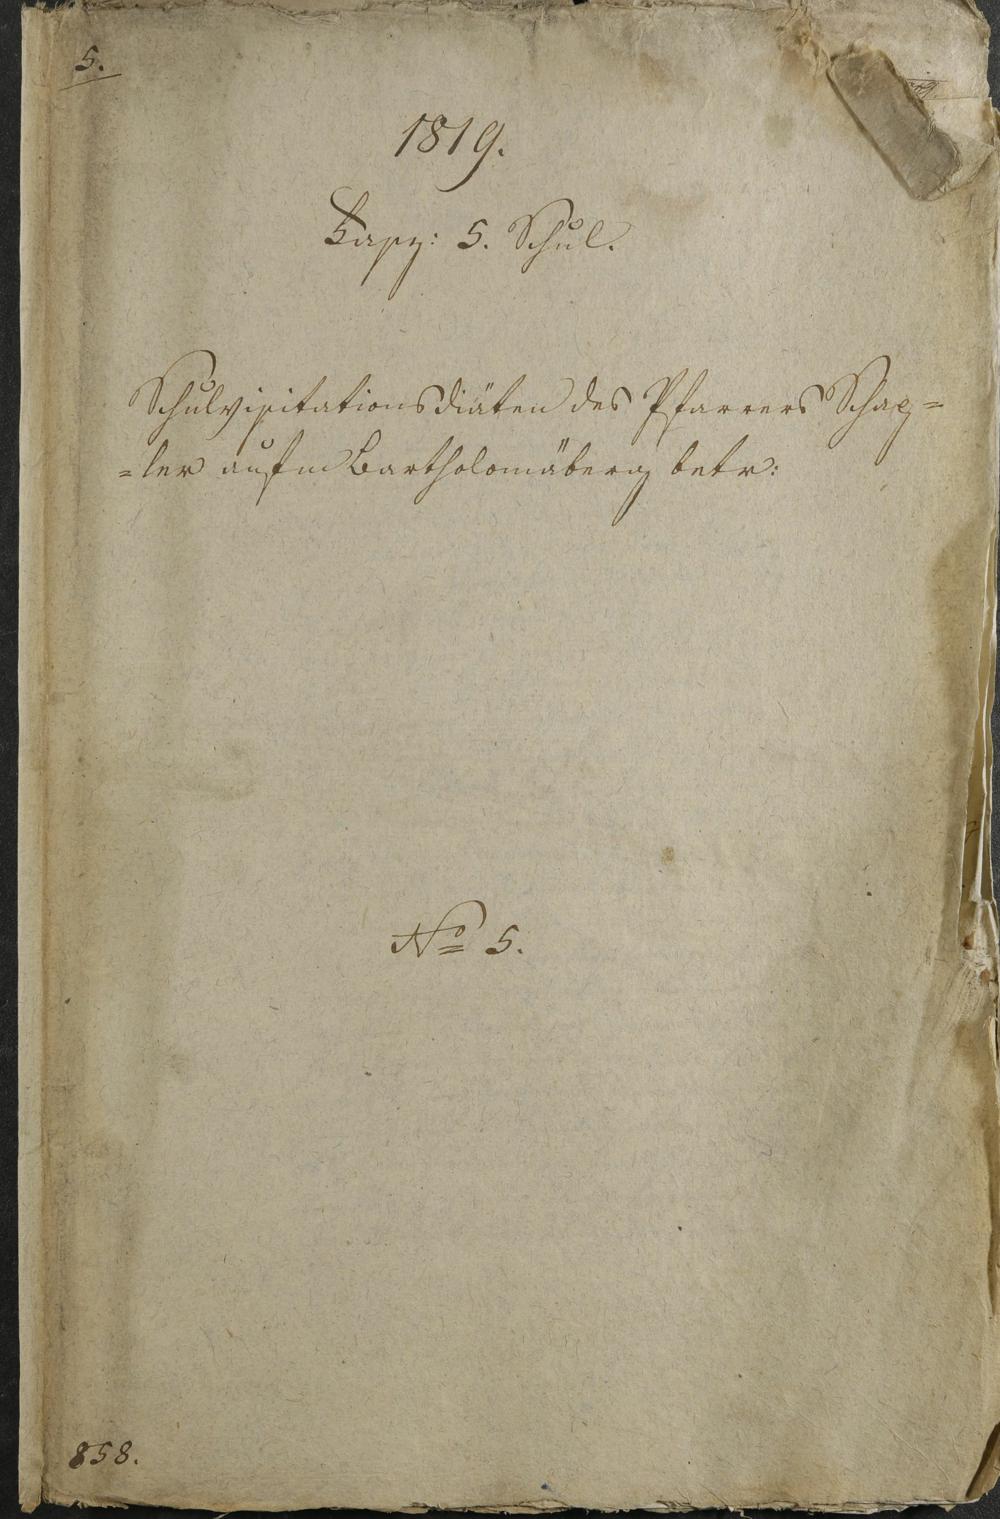 5.
1819.
Fasz: 5. Schul.
Schulvisitationsdiäten des Pfarrers Schap=
=ler aufm Bartholomäberg betr:
No 5.
858.